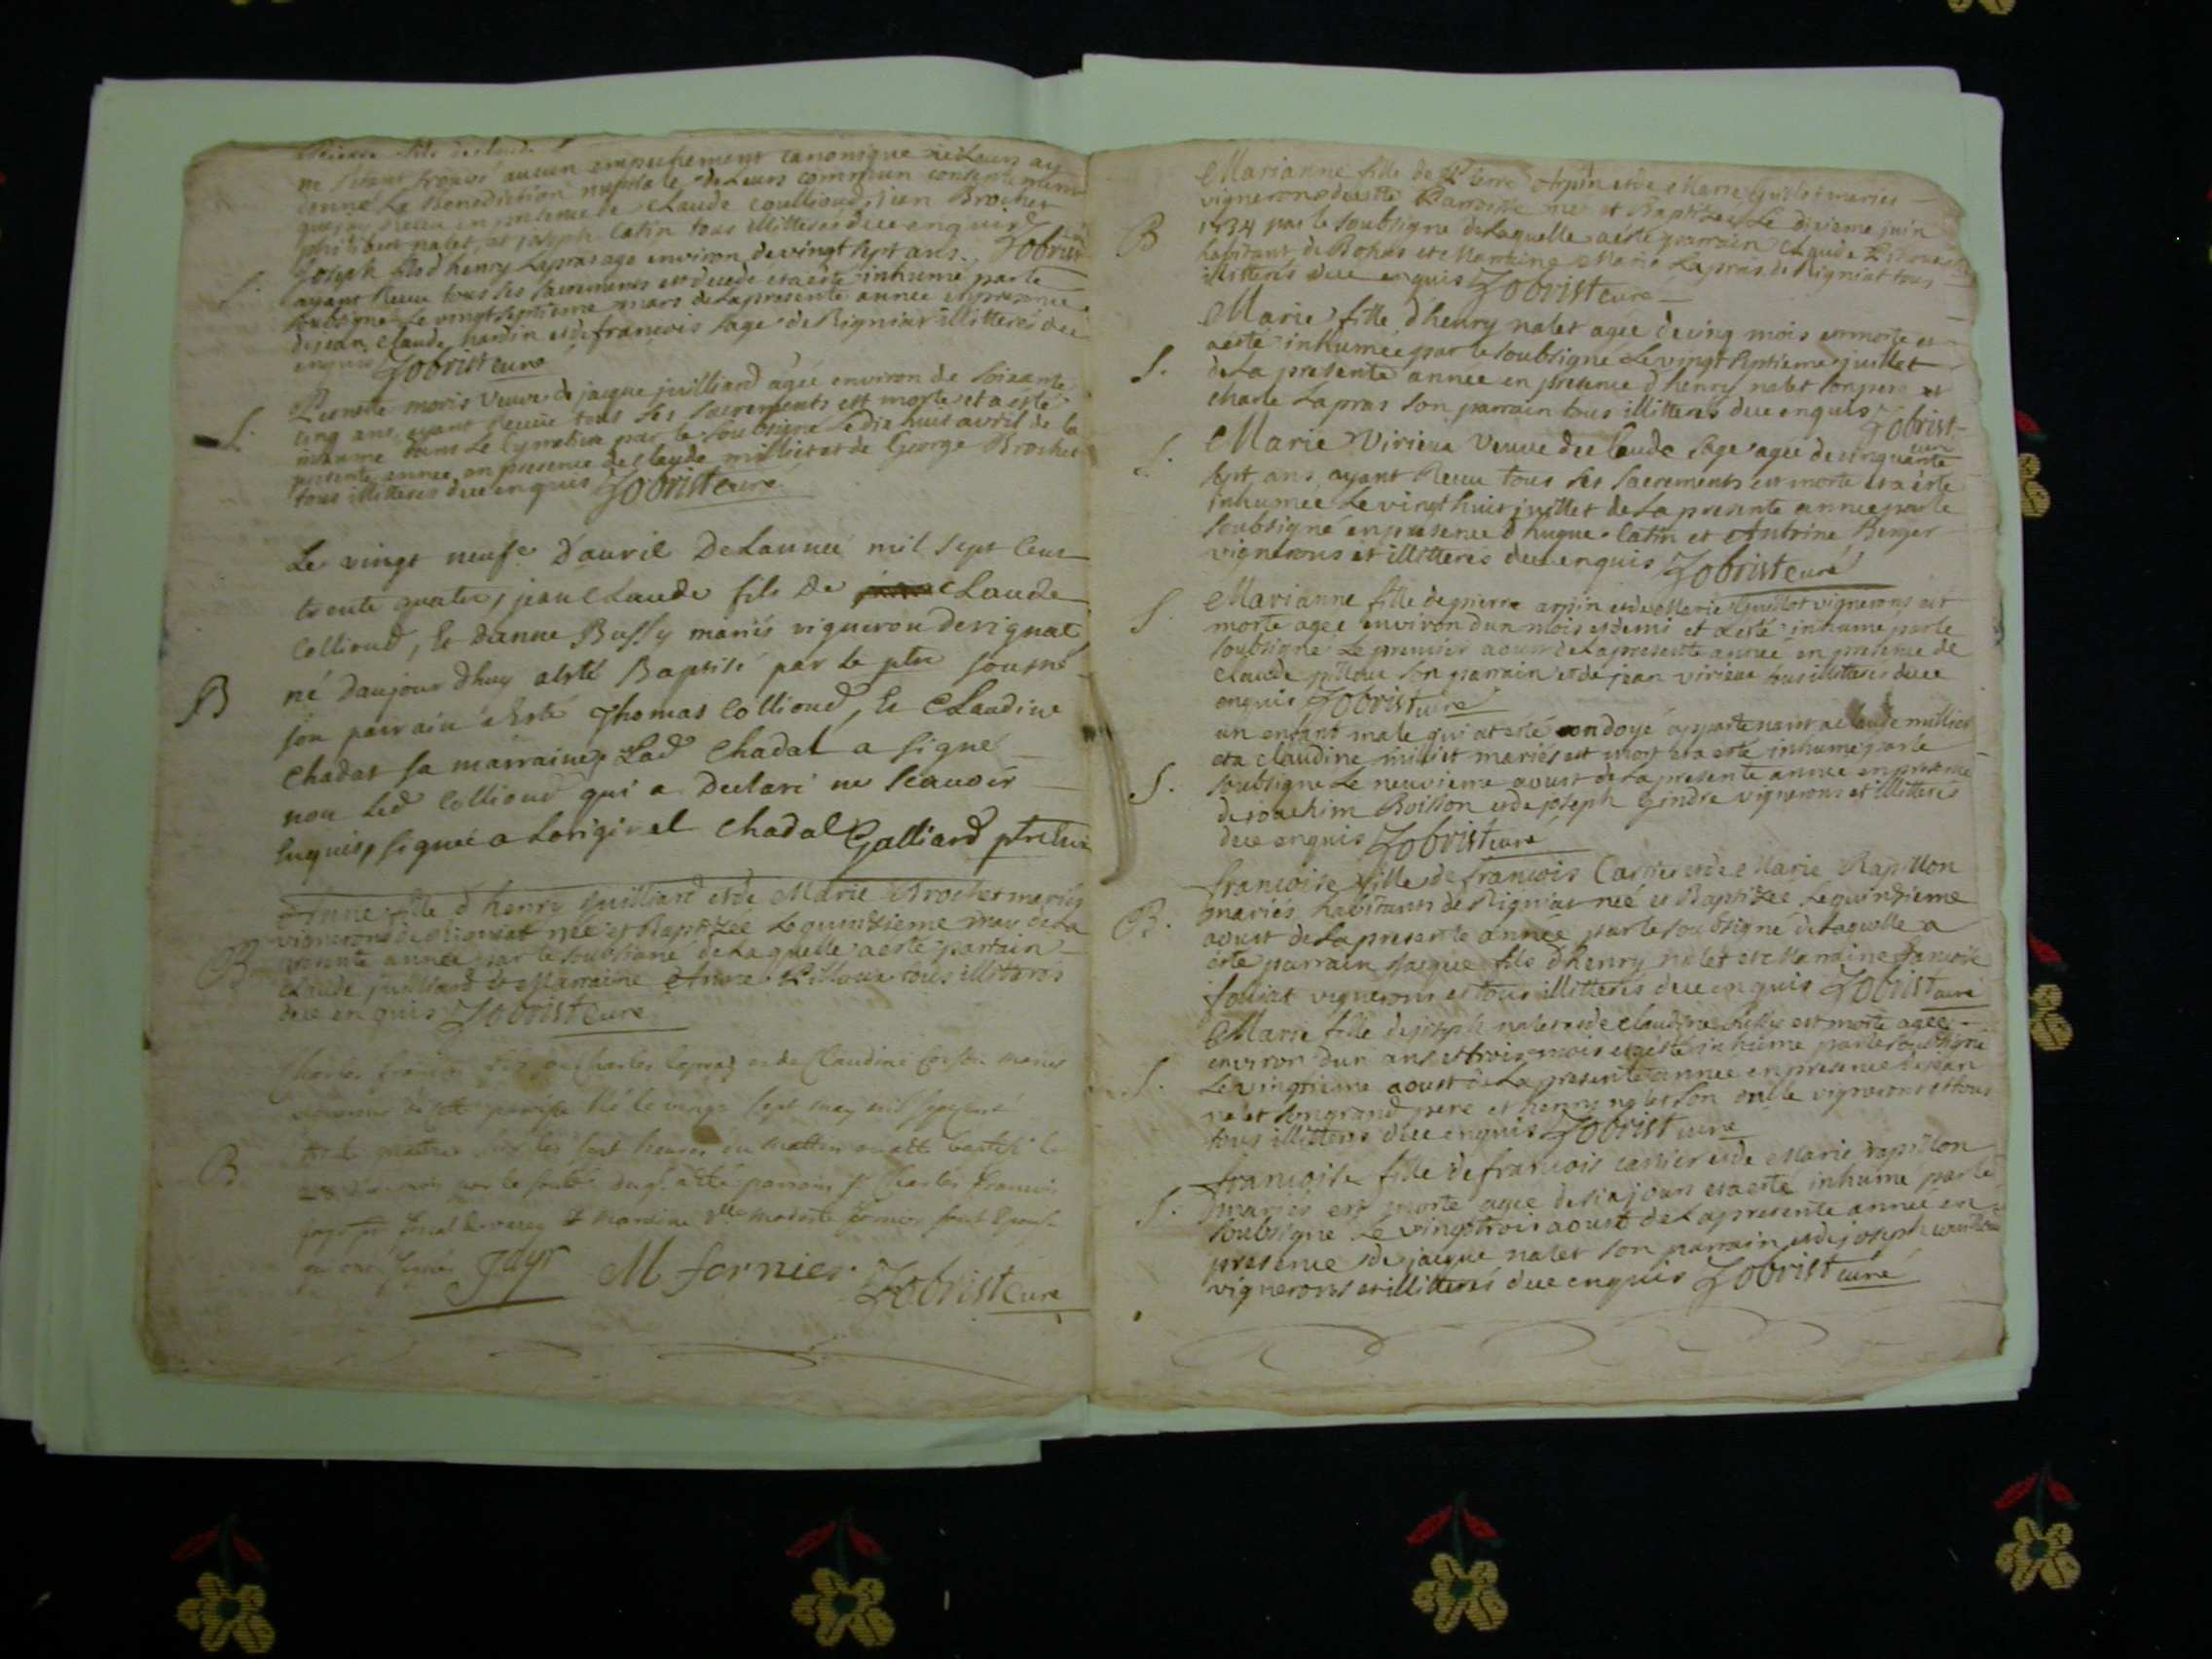 ne s'etant trouvé aucun empechement canonique je leurs ay
donné La Benediction nuptiale de Leurs commun consentement
que jay Receu en presence de Claude Coullioud, jean Brochet
philibert nalet, et joseph Catin tous illitterés dece enquis Zobrist
S. Joseph fils d henry Lapras age environ de vingt sept ans
ayant Receu tous les sacrements est decede et a esté inhumé parle
soubsigné Le vingt septieme mars de La presente année en presence
de jean Claude nardin et de francois sage de Rigniat illitterés dece
enquis Zobrist curé
S. Pernette moris Veuve de jaque juilliard agée environ de soixante
cinq ans, ayant Receüe tous Les sacrements est morte et a esté
inhumé dans Le Cymetiere par le soubsigne Le dix huit avril de la
presente année en presence de Claude milliet et de George Brochet
tous illitterés dece enquis Zobrist curé
Le vingt neufe d'avril De Lannee mil sept Cent
trente quatre, jean Claude fils De Claude
Collioud, Et d'anne Bussy mariés vigneron de rignat
B né d'aujourdhuy a esté Baptisé par le ptre sousné
son parrain a Esté Thomas Collioud, Et Claudine
Chadal sa marraine, Lad Chadal a signé
non Led Collioud qui a Declaré ne scauoir
Enquis, signée a Lorriginel Chadal Galliard ptre
Anne fille d henry juilliard et de Marie Brochet mariés
vignerons de Rigniat née et Baptizée Le quinzieme may de La
B presente année par le soubsigné de Laquelle a esté parrain
Claude juilliard et Marraine Anne Pilloux tous illitterés
dece enquis Zobrist curé
Charles francois fils de Charles Lapraz et de Claudine mariés
vignerons de cette paroisse né le vingt sept may mil sept cent
B trente quatre sur les sept heures du mattin a été baptisé le
28 dud mois par le soubsné duql a été parrain sr Charles francois
jayr et marraine dlle modeste fornier
qui ont signés Jayr M fornier Zobrist curé
Marianne fille de Pierre Arpin et de Marie Guillot mariés
vignerons de cette Parroisse née et Baptizée Le dixieme juin
B 1734 par le soubsigné de Laquelle a esté parrain Claude Pilloux
habitant de Bohas et Marraine Marie Lapras de Rigniat tous
illitterés dece enquis Zobrist curé
Marie fille d henry nalet agée de cinq mois est morte et
a esté inhumée par le soubsigné Le vingt septieme juillet
S. de La presente année en presence d henry nalet son pere et
charle Lapras son parrain tous illitterés dece enquis Zobrist
curé
S. Marie Virieux Veuve de Claude sage agée de cinquante
sept ans ayant Receu tous Les sacrements est morte et a esté
inhumée Le vingt huit juillet de La presente année parle
soubsigné en presence d hugue Catin et Antoine Berger
vignerons et illitterés dece enquis Zobrist curé
Marianne fille de pierre arpin et de Marie Guillot vignerons est
S. morte agée environ dun mois et demi et a esté inhumé parle
soubsigné Le premier aoust de La presente année en presence de
Claude pilloux son parrain et de jean virieux tous illitterés dece
enquis Zobrist curé
un enfant male qui at esté ondoyé appartenant a Claude milliet
et a claudine milliet mariés est mort et a esté inhumé par le
S. soubsigné Le neuvieme aoust de La presente année en presence
de joachim Boisson et de joseph Gindre vignerons et illitterés
dece enquis Zobrist curé
francoise fille de francois Carrier et de Marie Rapillon
mariés habitants de Rigniat née et Baptizée Le quinzieme
B. aoust de La presente année parle soubsigné de Laquelle a
esté parrain jaque fils d henry nalet et Marraine francoise
folliat vignerons et tous illitterés dece enquis Zobrist curé
Marie fille de joseph nalet et de Claudine est morte agée
environ dun ans et trois mois et a esté inhumé parle soubsigné
S. Le vingtieme aoust de La presente année en presence de jean
nalet son grand pere et henry nalet son oncle vignerons et tous
tous illitterés dece enquis Zobrist curé
francoise fille de francois carrier et de Marie rapillon
mariés est morte agée de six jours et a esté inhumé parle
S. soubsigné Le vingt trois aoust de La presente année en
presence de jacque nalet son parrain, et de joseph
vignerons et illitterés dece enquis Zobrist curé